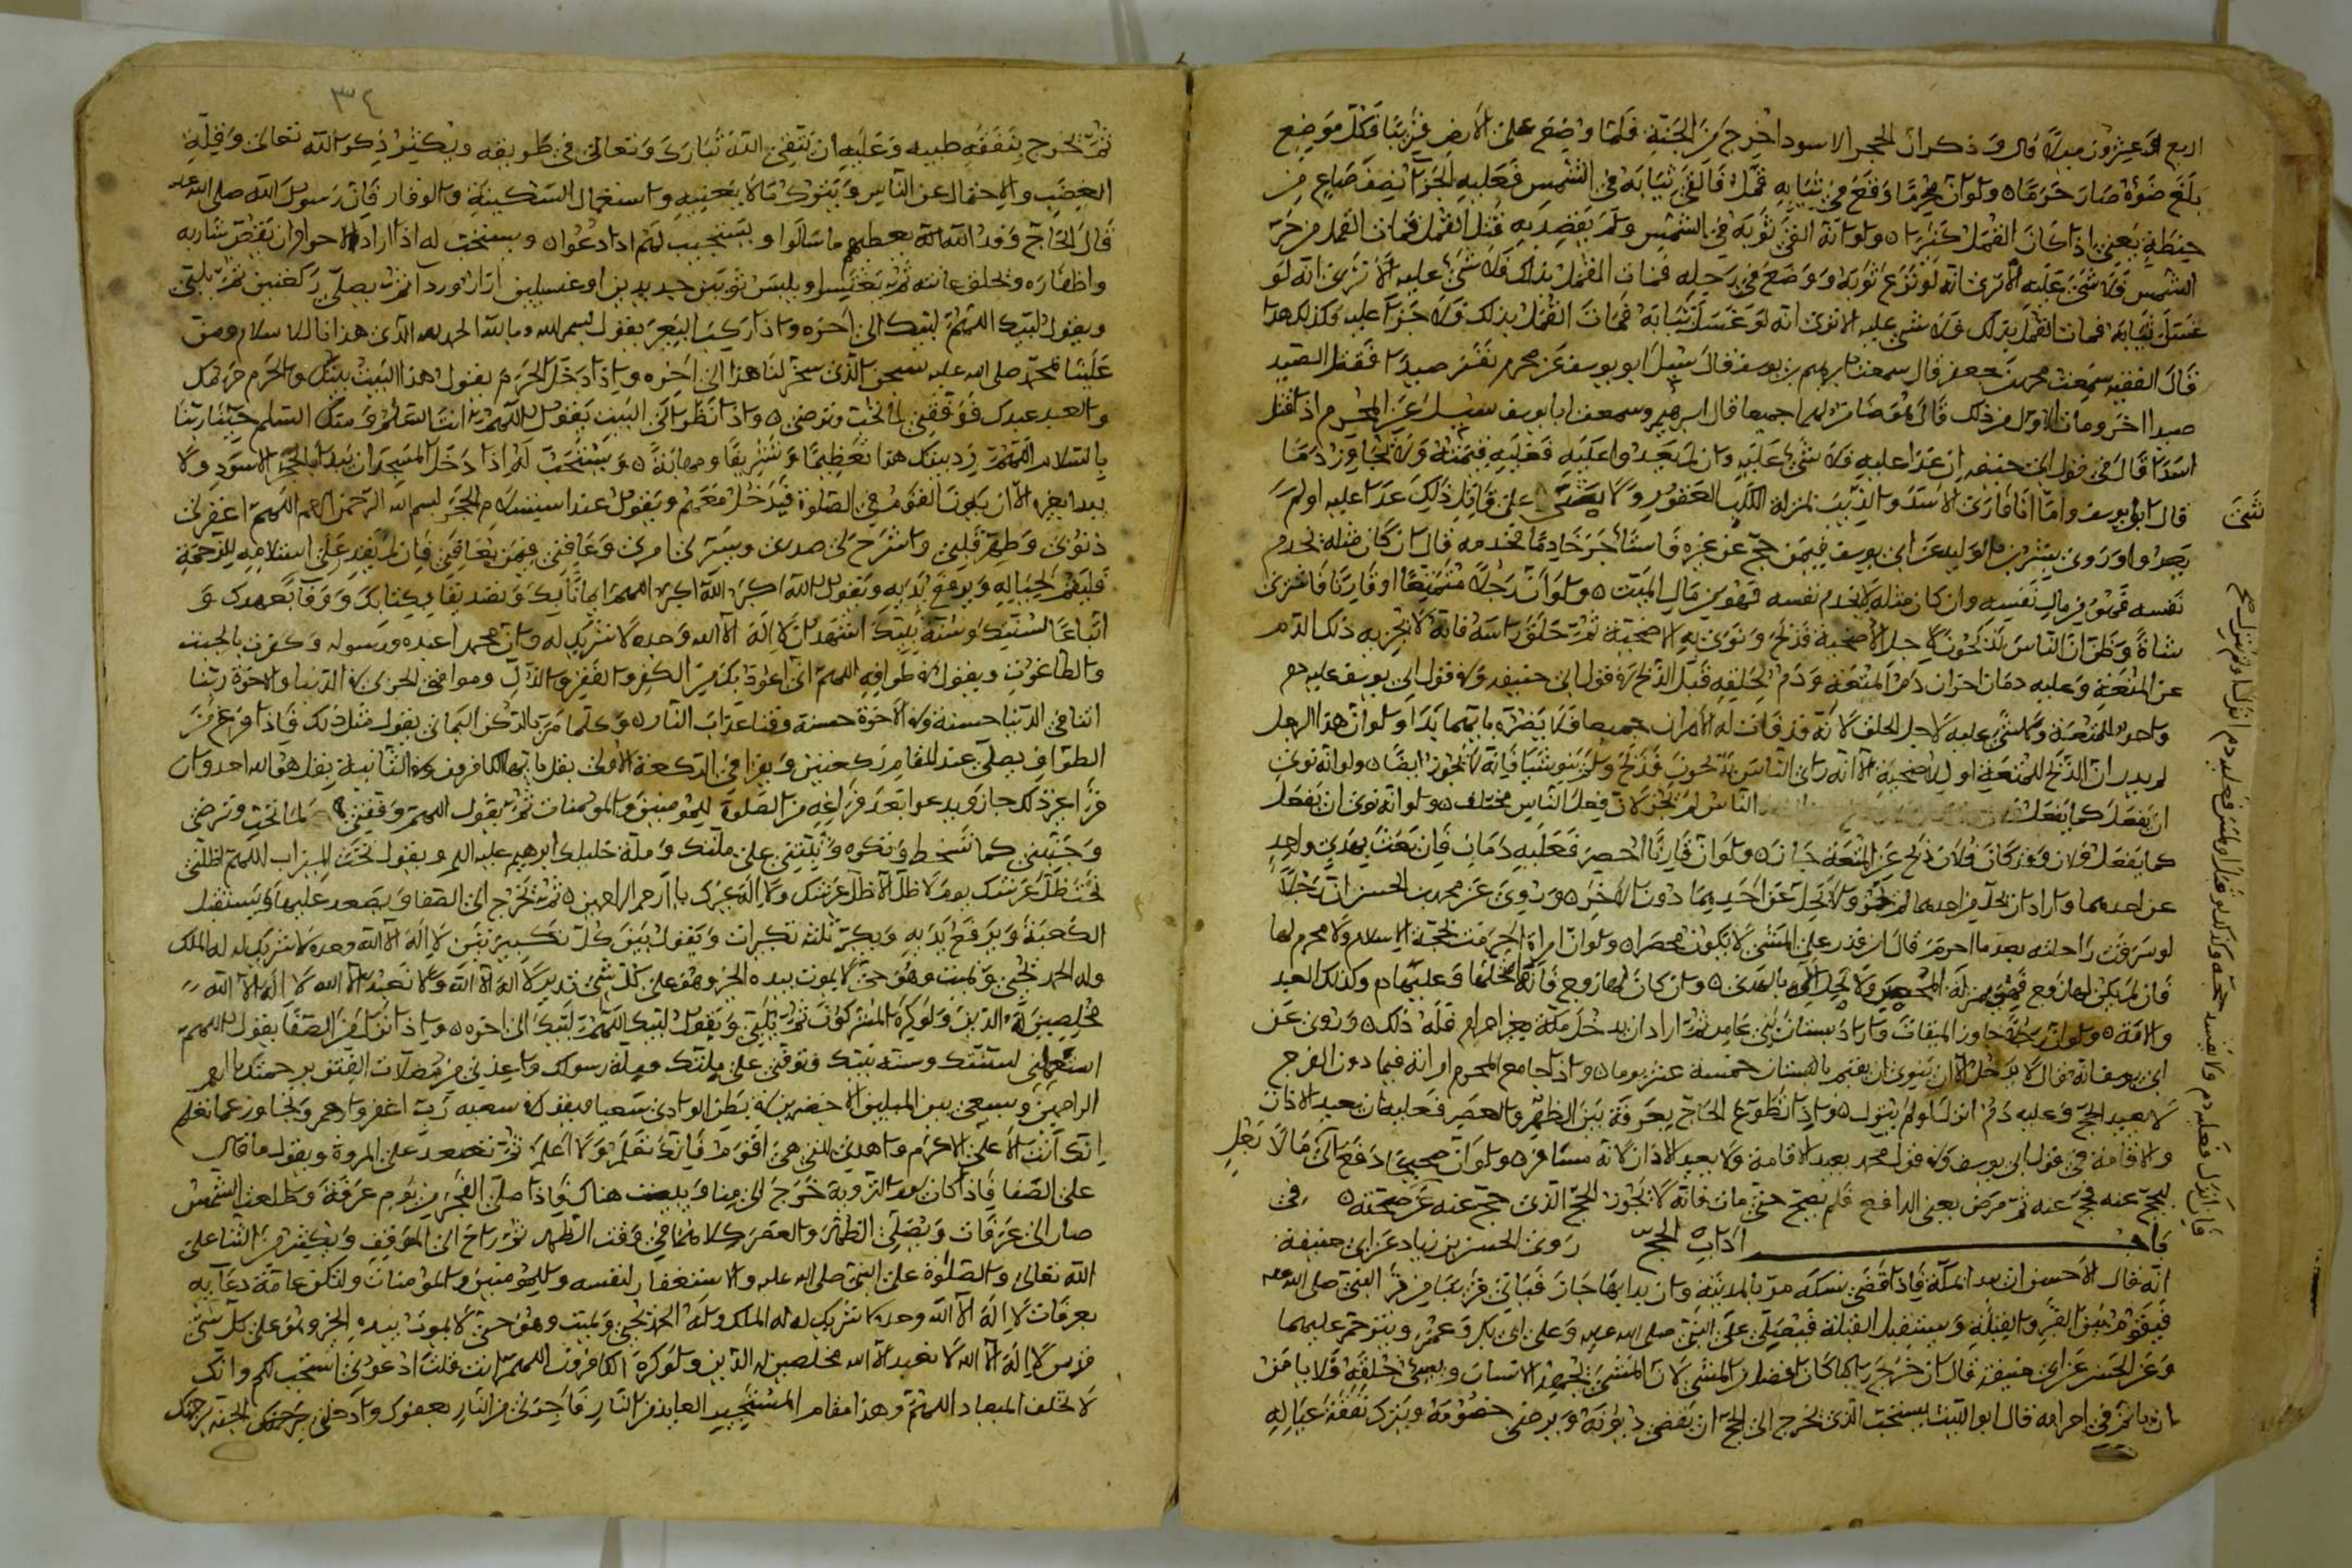 اربع وعشرون ميلا قال وذكر ان الحجر الاسود اخرج من الجنة فلما وضع على الارض فيربنا فكل موضع
بلغ ضوءه صار حرما ولو ان محرما وقع في ثيابه قمل فالقى ثيابه في الشمس فعليه الجزآ نصف صاع من
حنطة يعني اذا كان القمل كثيرا ولو انه القى ثوبه في الشمس ولم يقصد به قتل القمل فمات القمل من حر
الشمس فلا شئ عليه الا ترى انه لو نزع ثوبه ووضع في رحله فمات القمل بذلك فلا شئ عليه الا ترى انه لو
غسل ثيابه فمات القمل بذلك فلا شئ عليه الا ترى انه لو غسل ثيابه فمات القمل بذلك فلا جزآ عليه فكذلك هذا
قال الفقيه سمعت محمد بن جعفر قال سمعت ابرهيم بن يوسف قال سئل ابو يوسف عن محرم نفر صيدا فقتل الصيد
صيدا اخر ومات الاول من ذلك قال هو ضامن لهما جميعا قال ابرهيم وسمعت ابا يوسف سئل عن المحرم اذا قتل
اسدا قال في قول ابي حنيفه ان عدا عليه فلا شئ عليه وان لم يعدوا عليه فعليه قيمته ولا تجاوز دما
قال ابو يوسف واما انا فارى الاسد والذئب بمنزلة الكلب العقور ولا شئ على قاتل ذلك عدا عليه او لم
يعدوا وروى بشر بن الوليد عن ابي يوسف فيمن حج عن غيره فاستأجر خادما يخدمه قال ان كان مثله يخدم
نفسه فهو من مال نفسه وان كان مثله لا يخدم نفسه فهو من مال الميت ولو ان رجلا متمتعا او قارنا فاشترى
شاة وظن ان الناس يذبحون لاجل الاضحية فذبح ونوى به الاضحية ثم حلق راسه فانه لا يجزيه ذلك الدم
عن المتعة وعليه دمان اخران دم المتعة ودم لحلقه قبل الذبح في قول ابي حنيفه وفي قول ابي يوسف عليه دم
واحد للمتعة ولا شئ عليه لاجل الحلق لانه قد فات له الامران جميعا فلا يضره بايهما بدا ولو ان هذا الرجل
لم يدر ان الذبح للمتعة او للاضحية الا انه راى الناس يذبحون فذبح ولم ينو شيا فانه لا يجوز ايضا ولو انه نوى
ان يفعل كما يفعل الناس لم يجز لان فعل الناس مختلف ولو انه نوى ان يفعل
كما يفعل فلان وقد كان فلان ذبح عن المتعة جاز ولو ان قارنا احصر فعليه دمان فان بعث بهدي واحد
عن احدهما واراد ان يحل من احدهما لم يجز ولا يحل عن احديهما دون الاخر وروى عن محمد بن الحسن ان رجلا
لو سرقت راحلته بعد ما احرم قال ان قدر على المشي لا يكون محصرا ولو ان امراة احرمت لحجة الاسلام ولا محرم لها
فان لم يكن لها زوج فهي بمنزلة المحصر ولا تحل الا بالهدى وان كان لها زوج فانه يحللها وعليها دم وكذلك العبد
والامة ولو ان رجلا جاوز الميقات واراد بستان بني عامر ثم اراد ان يدخل مكة بغير احرام فله ذلك وروى عن
ابي يوسف انه قال لا يدخل الا ان ينوي ان يقيم بالبستان خمسة عشر يوما واذا جامع المحرم امراته فيما دون الفرج
لا يعيد الحج وعليه دم انزل او لم ينزل واذا تطوع الحاج بعرفة بين الظهر والعصر فعليه ان يعيد الاذان
والاقامة في قول ابي يوسف وفي قول محمد يعيد الاقامة ولا يعيد الاذان لانه مسافر ولو ان صحيحا دفع الى رجل مالا
ليحج عنه فحج عنه ثم مرض يعني الدافع فلم يصح حتى مات فانه لا يجوز الحج الذي حج عنه عن صحته
باب اداب الحج روى الحسن بن زياد عن ابي حنيفة
انه قال الاحسن ان يبدا بمكة فاذا قضى نسكه مر بالمدينة وان بدا بها جاز فياتي قريبا من قبر النبي صلى الله عليه
فيقوم بين القبر والقبلة ويستقبل القبلة فيصلي على النبي صلى الله عليه وعلى ابي بكر وعمر ويترحم عليهما
وعن الحسن عن ابي حنيفة قال ان خرج راكبا كان افضل من المشي لان المشي يجهد الانسان ويسئ خلقه فلا يامن
ان ياثم في احرامه قال ابو الليث يستحب الذي يخرج الى الحج ان يقضي ديونه ويرضى خصومه ويترك نفقة عياله
شئ
فان انزل فعليه دم
٣٤
ثم يخرج بنفقة طيبه وعليه ان يتقي الله تبارك وتعالى في طريقه ويكثر ذكر الله تعالى وقلة
الغضب والاحتمال عن الناس ويترك مالا يعنيه واستعمال السكينة والوقار فان رسول الله صلى الله عليه
قال الحاج وفد الله الله يعطيهم ما سالوا ويستجيب لهم اذا دعوا ويستحب له اذا اراد الاحرام ان يقص شاربه
واظفاره وتحلق عانته ثم يغتسل ويلبس ثوبين جديدين او غسيلين ازار وردآ ثم يصلي ركعتين ثم يلبي
ويقول لبيك اللهم لبيك الى اخره واذا ركب البعير يقول بسم الله وبالله الحمد لله الذي هدانا للاسلام ومن
علينا بمحمد صلى الله عليه سبحن الذي سخر لنا هذا الى اخره واذا دخل الحرم يقول هذا البيت بيتك والحرم حرمك
والعبد عبدك فوفقني لما تحب وترضى واذا نظر الى البيت يقول اللهم انت السلام ومنك السلم حينا ربنا
بالسلام اللهم زد بيتك هذا تعظيما وتشريفا ومهابة ويستحب له اذا دخل المسجد ان يبدا بالحجر الاسود ولا
يبدا بغيره الا ان يكون القوم في الصلوة فيدخل معهم ويقول عند استلام الحجر بسم الله الرحمن الرحيم اللهم اغفر لي
ذنوبي وطهر قلبي واشرح لي صدري ويسر لي امري وعافني فيمن تعافي فان لم يقدر على استلامه للزحمة
فليقم بحياله ويرفع يديه ويقول الله اكبر الله اكبر اللهم ايمانا بك وتصديقا بكتابك ووفآ بعهدك و
اتباعا لسنتك وسنة نبيك اشهد ان لا اله الا الله وحده لا شريك له وان محمدا عبده ورسوله وكفرت بالجبت
والطاغوت ويقول في طوافه اللهم اني اعوذ بك من الكفر والفقر والذل ومواقف الخزي في الدنيا والاخرة ربنا
اتنا في الدنيا حسنة وفي الاخرة حسنة وقنا عذاب النار وكلما مر بالركن اليماني يقول مثل ذلك فاذا فرغ من
الطواف يصلي عند المقام ركعتين ويقرا في الركعة الاولى بقل يا ايها الكافرون وفي الثانية بقل هو الله احد وان
قرا غير ذلك جاز ويدعوا بعد فراغه من الصلوة للمؤمنين والمومنات ثم يقول اللهم وفقني لما تحب وترضى
وجنبني كما تسخط وتكره وثبتني على ملتك وملة خليلك ابرهيم عليه السلم ويقول تحت الميزاب اللهم اظلني
تحت ظل عرشك يوم لا ظل الا ظل عرشك ولا اله غيرك يا ارحم الراحمين ثم يخرج الى الصفا ويصعد عليها ويستقبل
الكعبة ويرفع يديه ويكبر ثلث تكبيرات ويقول بين كل تكبيرتين لا اله الا الله وحده لا شريك له له الملك
وله الحمد يحيي ويميت وهو حي لا يموت بيده الخير وهو على كل شئ قدير لا اله الا الله ولا نعبد الا الله لا اله الا الله
مخلصين له الدين ولو كره المشركون ثم يلبي ويقول لبيك اللهم لبيك الى اخره واذا نزل من الصفا يقول اللهم
استعملني لسنتك وسنة نبيك وتوفني على ملتك وملة رسولك واعذني من مضلات الفتن برحمتك يا ارحم
الراحمين ويسعى بين الميلين الاخضرين في بطن الوادي سعيا ويقول في سعيه رب اغفر وارحم وتجاوز عما تعلم
انك انت الاعلى الاكرم واهدني للتي هي اقوم فانك تعلم ولا اعلم ثم تصعد على المروة ويقول ما قال
على الصفا فاذا كان يوم التروية خرج الى منا ويبيت هناك فاذا صلى الفجر من يوم عرفة وطلعت الشمس
صار الى عرفات ويصلي الظهر والعصر كلاهما في وقت الظهر ثم راح الى الموقف ويكثر من الثنا على
الله تعالى والصلوة على النبي صلى الله عليه والاستغفار لنفسه وللمؤمنين والمؤمنات ولتكن عامة دعآيه
بعرفات لا اله الا الله وحده لا شريك له له الملك وله الحمد يحيي ويميت وهو حي لا يموت بيده الخير وهو على كل شئ
قدير لا اله الا الله لا نعبد الا الله مخلصين له الدين ولو كره الكافرون اللهم انت قلت ادعوني استجب لكم وانك
لا تخلف الميعاد اللهم وهذا مقام المستجير العايذ من النار فاجرني من النار بعفوك وادخلني الجنة برحمتك